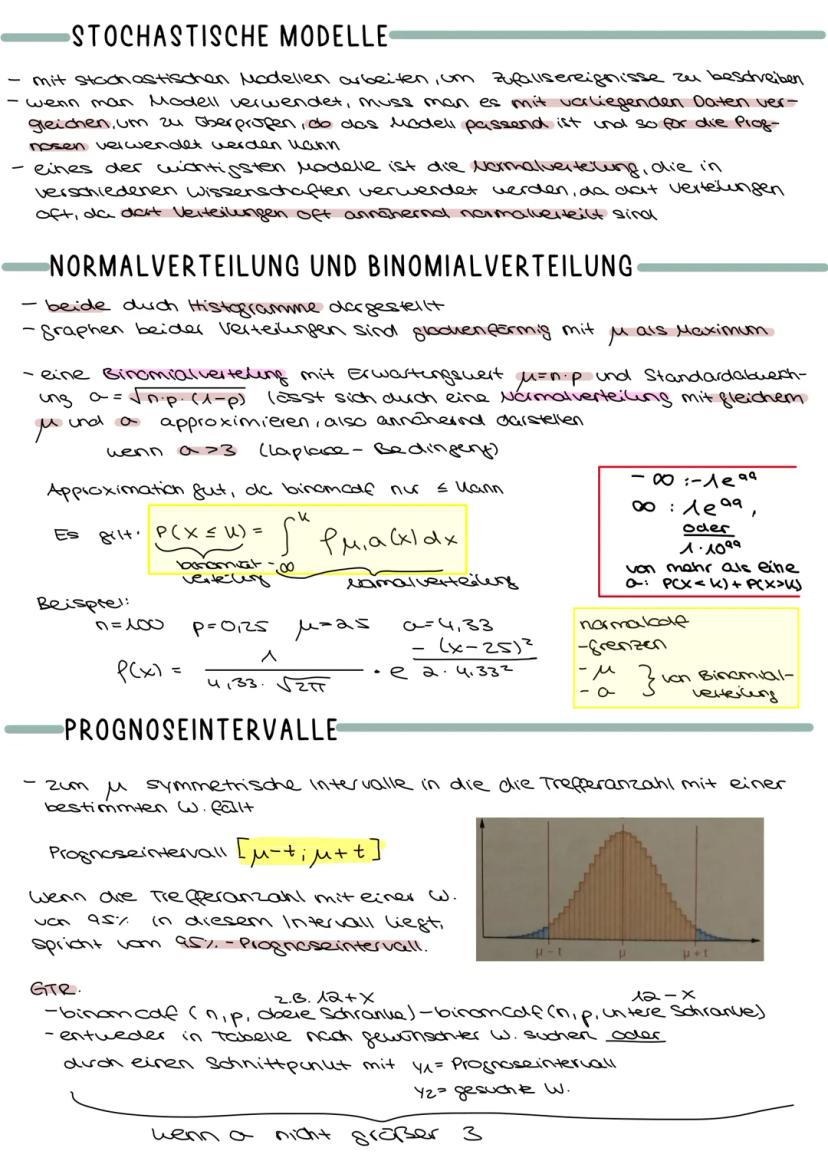 STOCHASTISCHE MODELLE
- mit stochastischen Modellen arbeiten, um Zufallsereignisse zu beschreiben
- wenn man Modell verwendet, muss man es mit vorliegenden Daten ver-
gleichen, um zu überprüfen, ob das Modell passend ist und so für die Prog-
nosen verwendet werden kann
- eines der wichtigsten Modelle ist die Normalverteilung, die in
verschiedenen Wissenschaften verwendet werden, da dort Verteilungen
oft, da dort Verteilungen oft annähernd normalverteilt sind
NORMALVERTEILUNG UND BINOMIALVERTEILUNG
- beide durch Histogramme dargestellt
- graphen beider Verteilungen sind glockenförmig mit μ als Maximum
- eine Binomialverteilung mit Erwartungswert μ=n·p und Standardabweich-
ung a = √n·p·(1-p) lässt sich durch eine Normalverteilung mit gleichem
μ und a approximieren, also annähernd darstellen
wenn a >3 (Laplace - Bedingung)
Approximation gut, da binomcdf nur ≤ kann
Es gilt: P(X ≤ k) = ∫ k -∞ φ μ,a (x) dx
binomial-
verteilung
Normalverteilung
- ∞ : -1e99
∞ : 1e99,
oder
1·10^99
von mehr als eine
a: P(X<k)+P(X>k)
Beispiel:
n=100 p=0,25 μ=25 a=4,33
φ(x) = 1 / (4,33·√2π) · e^(-(x-25)² / (2·4,33²))
normalcdf
-grenzen
- μ
- a } von Binomial-
verteilung
PROGNOSEINTERVALLE
- zum μ symmetrische Intervalle in die die Trefferanzahl mit einer
bestimmten W. fällt
Prognoseintervall [μ-t; μ+t]
Wenn die Trefferanzahl mit einer W.
von 95% in diesem Intervall liegt,
spricht vom 95%-Prognoseintervall.
μ-t μ μ+t
GTR:
z.B. 12+x 12-x
-binomcdf (n, p, obere Schranke) -binomcdf (n, p, untere Schranke)
- entweder in Tabelle nach gewünschter W. suchen oder
durch einen Schnittpunkt mit y1= Prognoseintervall
y2= gesuchte W.
wenn a nicht größer 3